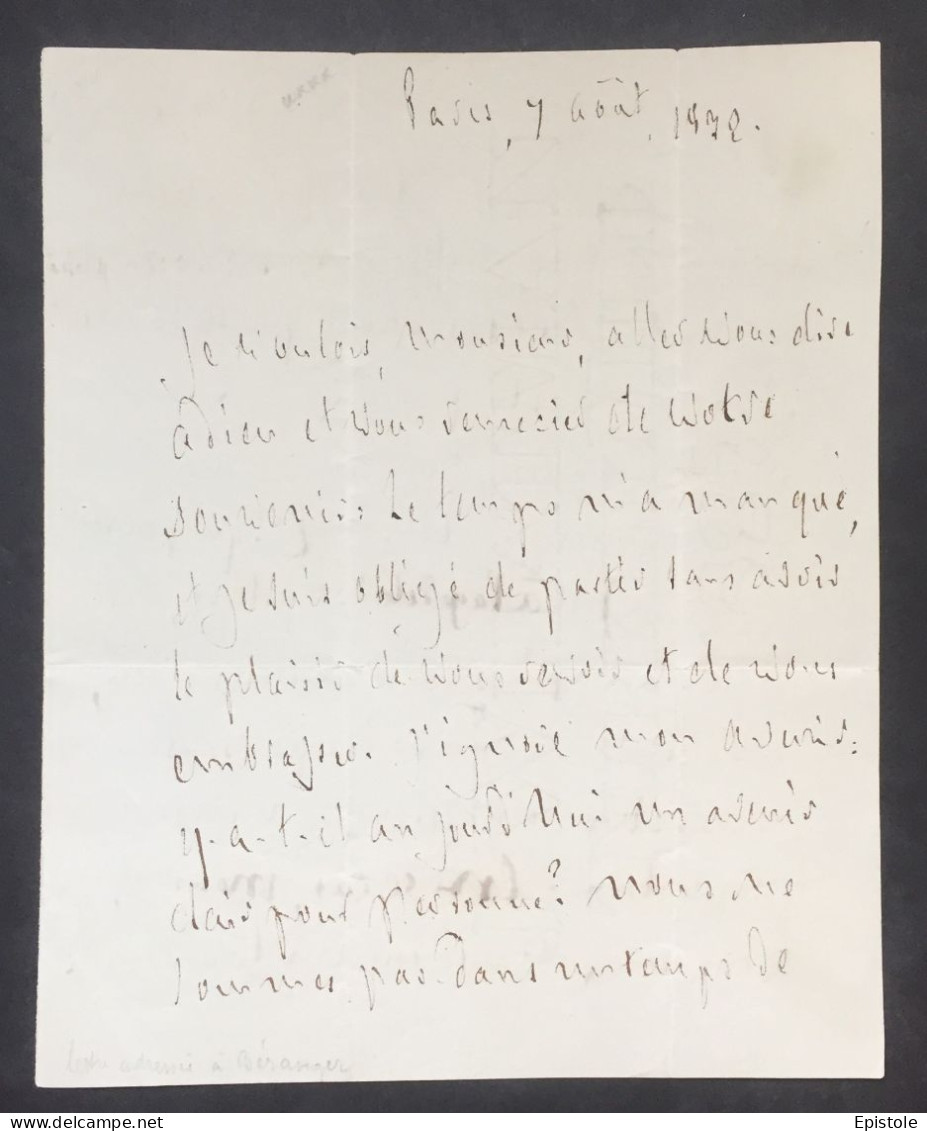 Paris, 7 août, 1832.
Je voulois, monsieur, aller vous dire
adieu et vous remercier de votre
souvenir: le temps m'a manqué,
et je suis obligé de partir sans avoir
le plaisir de vous revoir et de vous
embrasser. J'ignore mon avenir:
y-a-t-il aujourd'hui un avenir
clair pour personne? Nous ne
sommes pas dans un temps de
lettre adressée à Béranger
Epistole